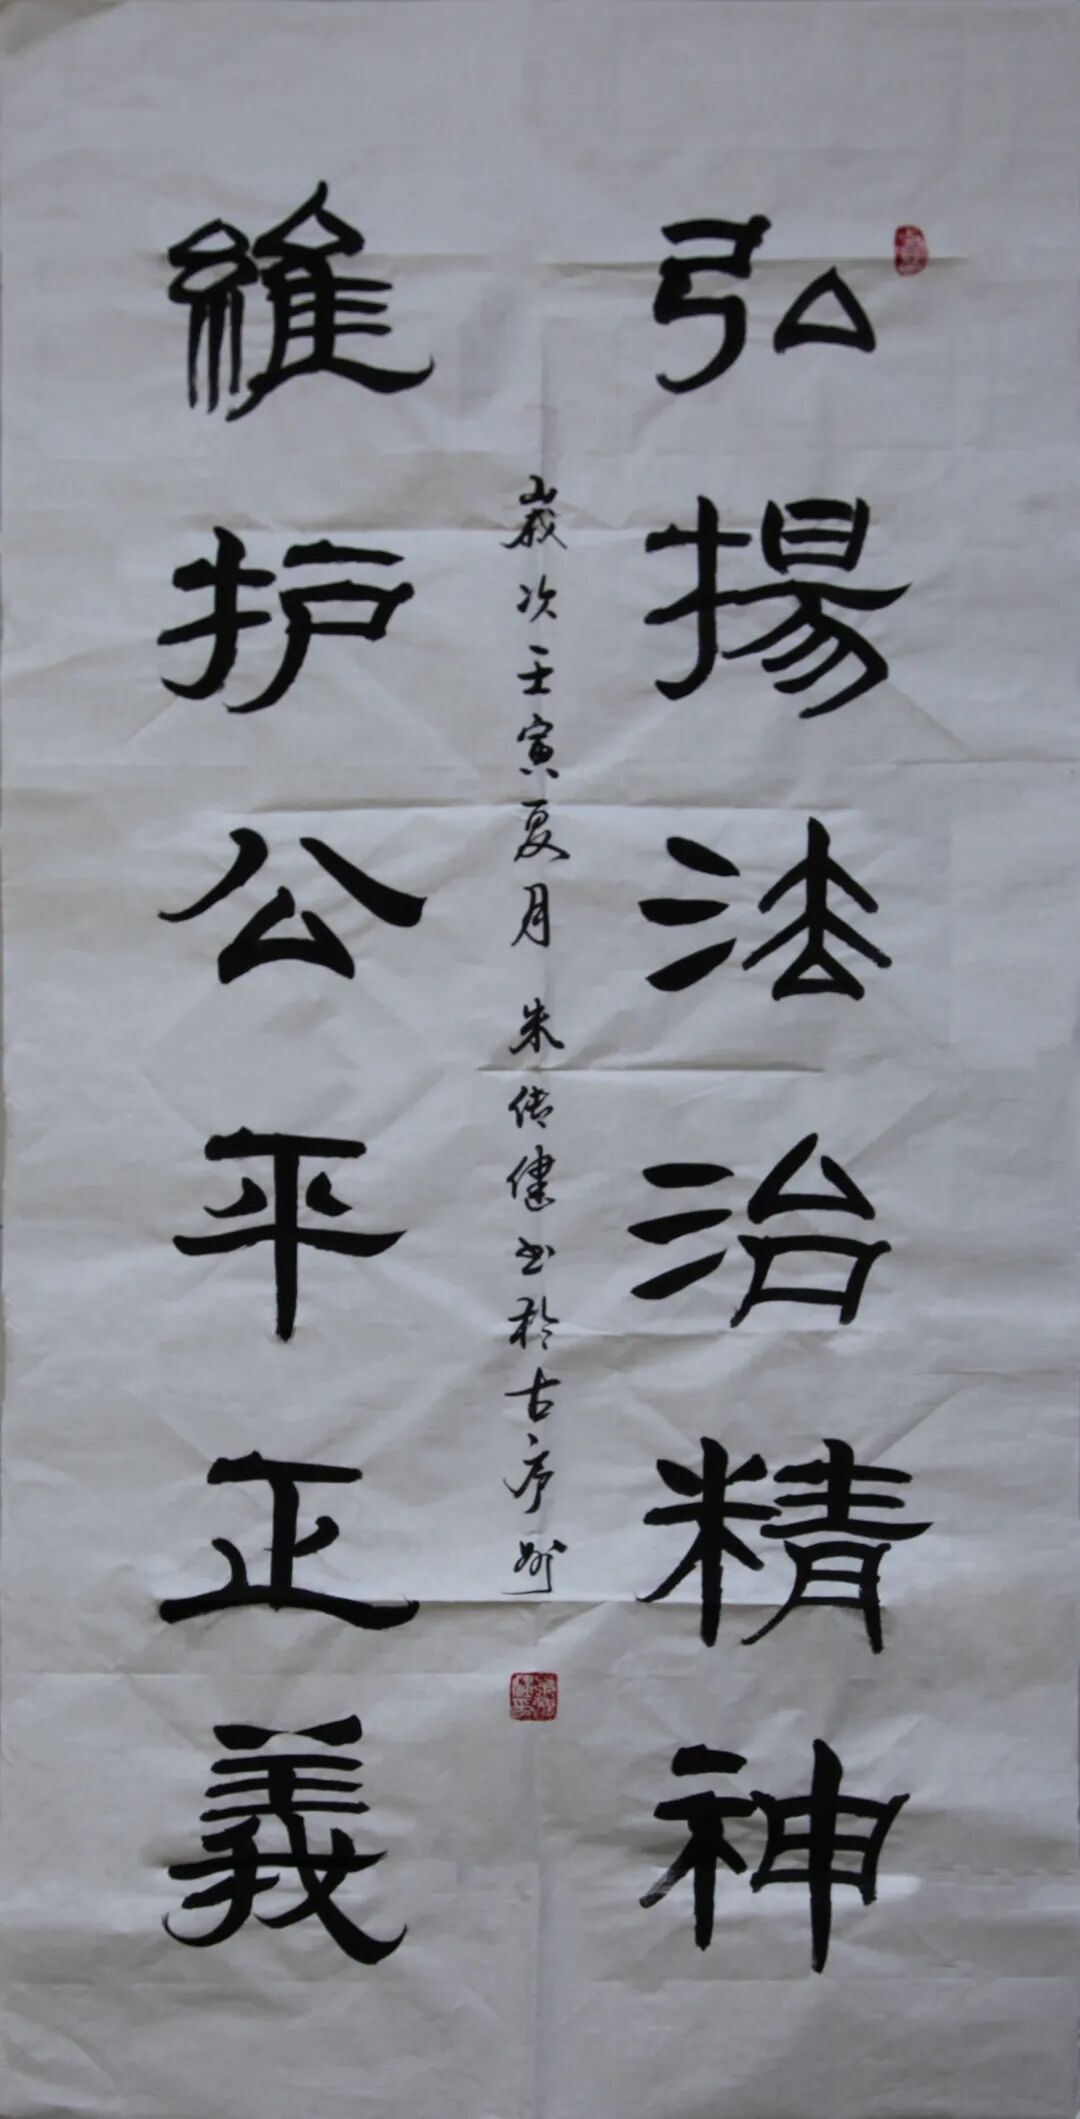 弘揚法治精神
維护公平正義
歲次壬寅夏月 朱传健书於古序州